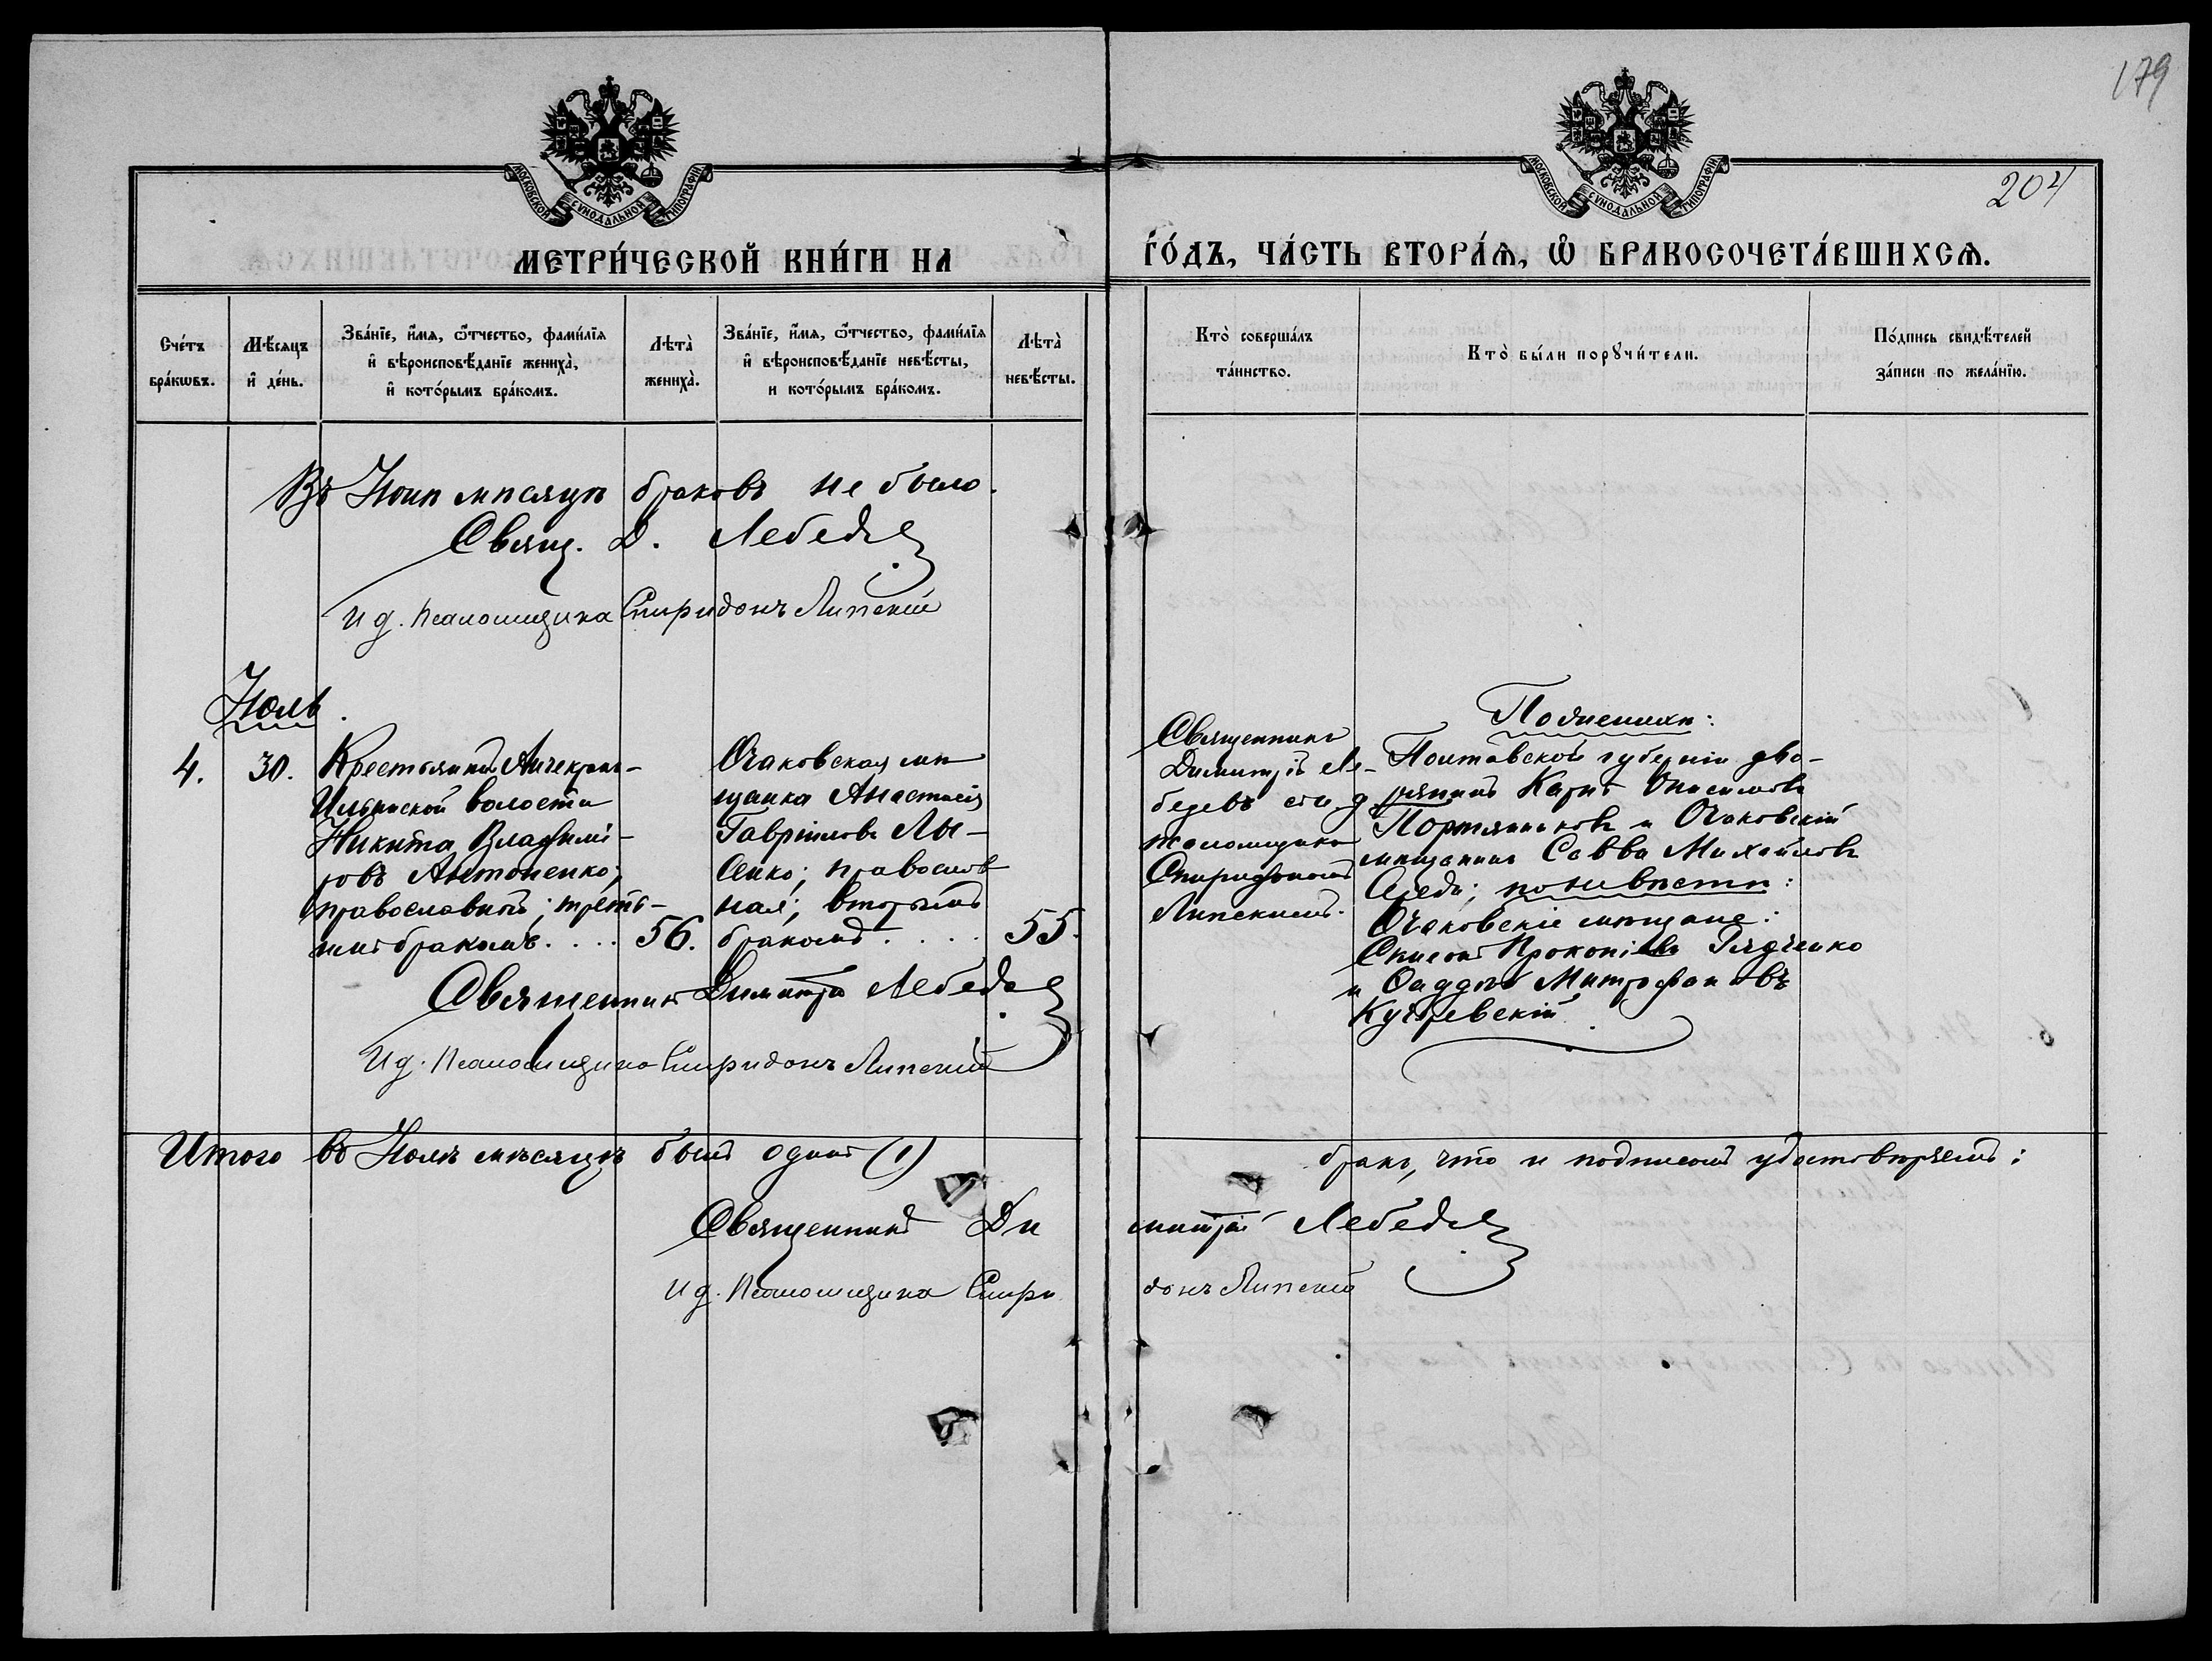 179
204
МОСКОВСКОЙ СѴНОДАЛЬНОЙ ТИПОГРАФІИ
МОСКОВСКОЙ СѴНОДАЛЬНОЙ ТИПОГРАФІИ
МЕТРИ́ЧЕСКОЙ КНИ́ГИ НА
ГО́ДЪ, ЧА́СТЬ ВТОРА́Ѧ, Ѽ БРАКОСОЧЕТА́ВШИХСѦ.
Сче́тъ
бра́кѡвъ.
Мѣ́сяцъ
и҆ де́нь.
Зва́нїе, и҆́мя, ѻ҆́тчество, фами́лїя
и҆ вѣроисповѣ́данїе жениха̀,
и҆ кото́рымъ бра́комъ.
Лѣта̀
жениха̀.
Зва́нїе, и҆́мя, ѻ҆́тчество, фами́лїя
и҆ вѣроисповѣ́данїе невѣ́сты,
и кото́рымъ бра́комъ.
Лѣта̀
невѣ́сты.
Кто̀ соверша́лъ
та́инство.
Кто̀ бы́ли порꙋчи́тели.
По́дпись свидѣ́телей
за́писи по жела́нїю.
Въ Іюнѣ мѣсяцѣ браковъ не было.
Свящ. Д. Лебедевъ
И д. Псаломщика Спиридонъ Липскій
Іюль.
4.
30.
Крестьянинъ
Ильинской волости
Никита Владимі-
ровъ Антоненко,
православный; треть-
имъ бракомъ. . . .
56.
Очаковская мѣ
щанка Анастасія
Гавріилова Лы-
сенко; православ
ная; вторымъ
бракомъ . . . .
55.
Священникъ
Димитрій Ле-
бедевъ съ и. д
псаломщика
Спиридономъ
Липскимъ.
По женихѣ:
Полтавской губерніи дво-
рянинъ Карпъ Онисимовъ
Портянниковъ и Очаковскій
мѣщанинъ Савва Михайловъ
по невѣстѣ:
Очаковскіе мѣщане:
Прокопіевъ Гладченко
и Фаддей Митрофановъ
Кучеревскій
Священникъ Димитрій Лебедевъ
И д. Псаломщика Спиридонъ Липскій
Итого въ Іюлѣ мѣсяцѣ былъ одинъ (1)
бракъ, что и подписомъ удостовѣряемъ:
Священникъ Ди
митрій Лебедевъ
И д. Псаломщика Спири
донъ Липскій